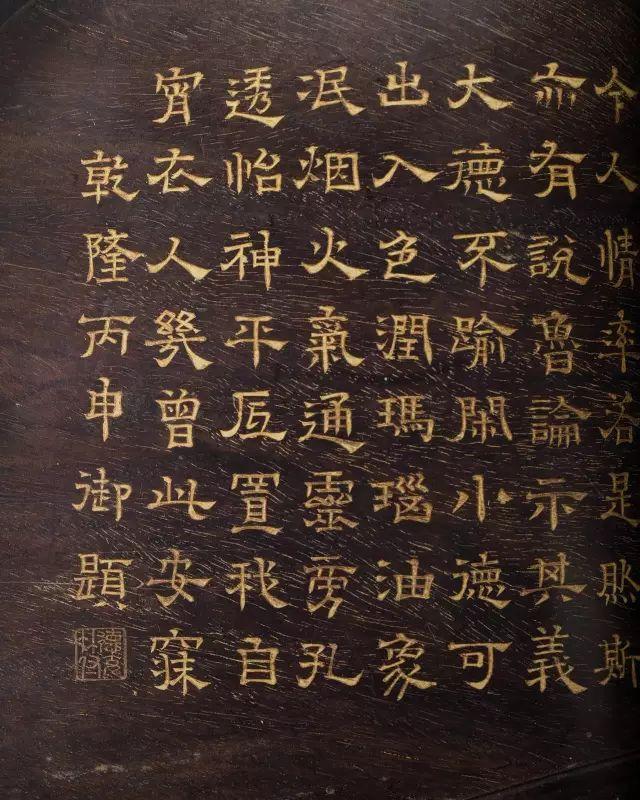 今人情率若是然斯
亦有說魯論示其義
大德不踰閑小德可
出入色潤瑪瑙油象
泯烟火氣通靈旁孔
透怡神平厎置我自
宵衣人幾曾此安寐
乾隆丙申御題